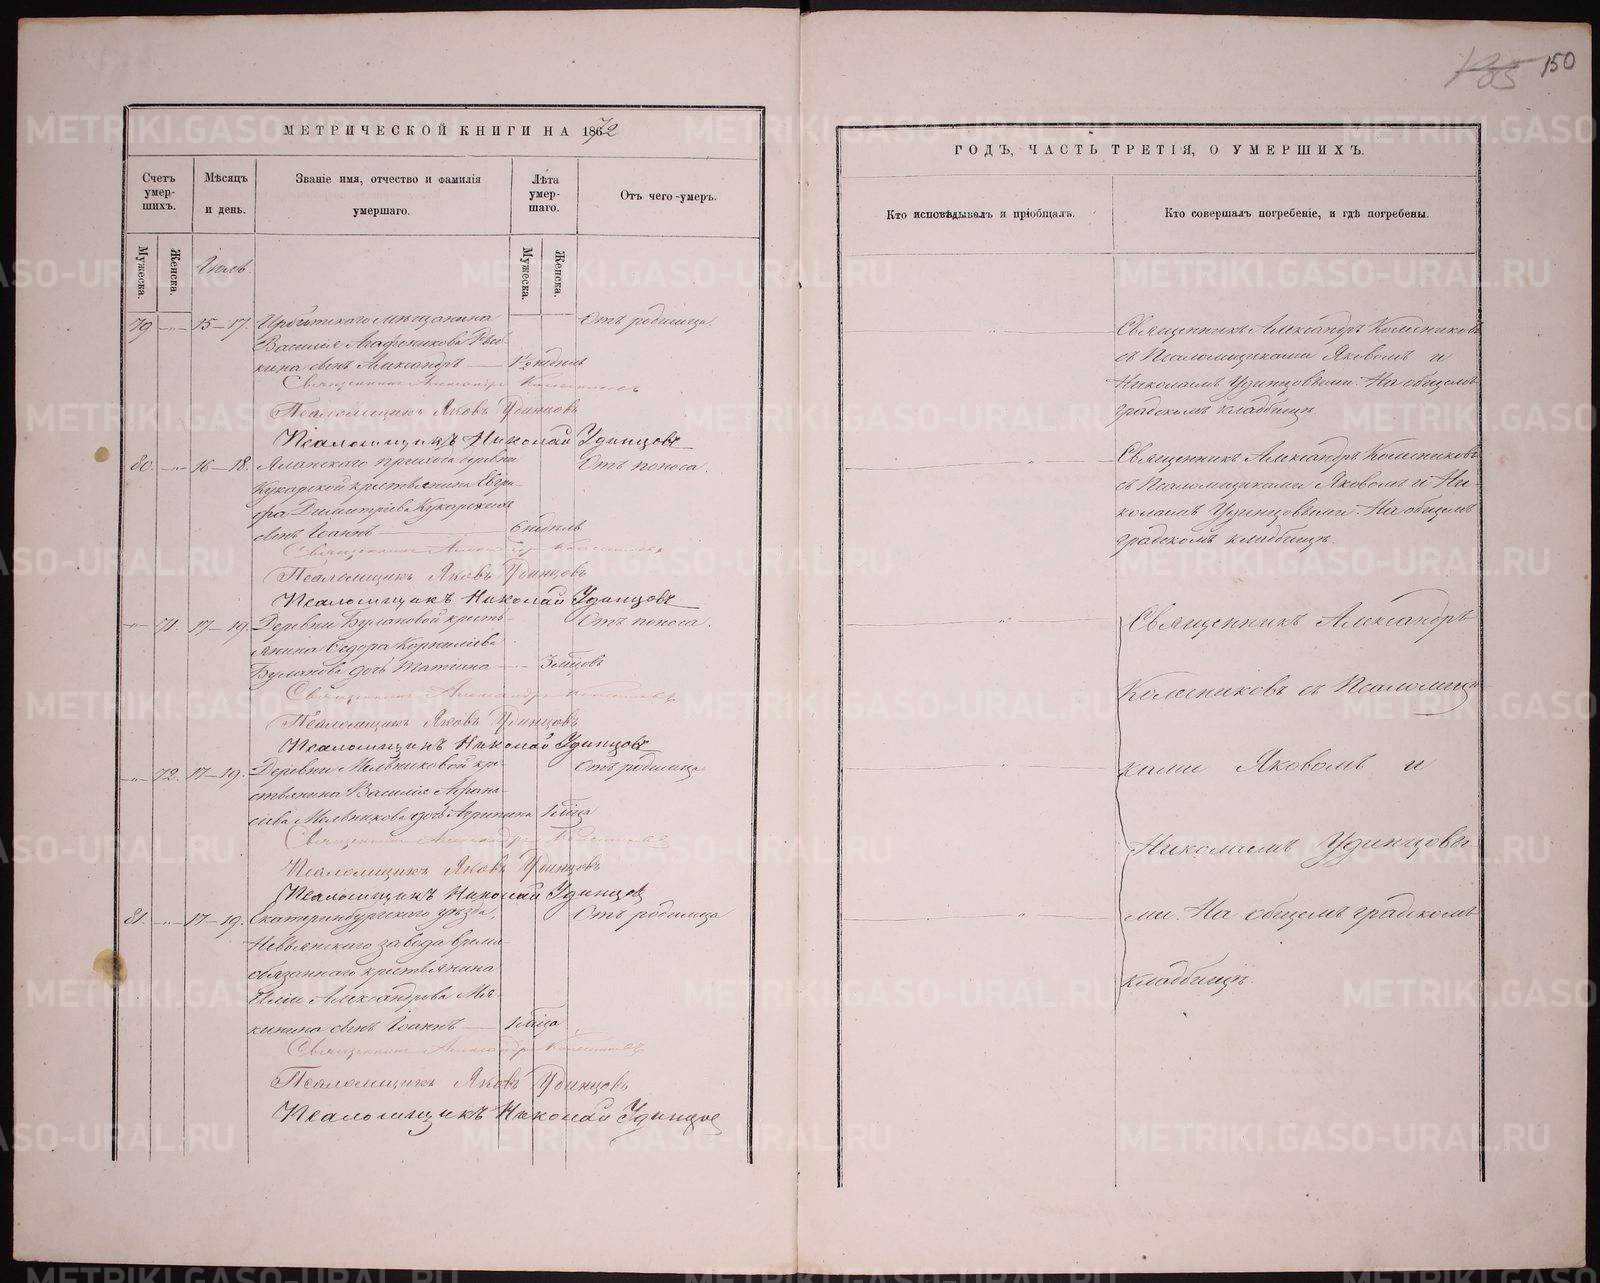 150
МЕТРИЧЕСКОЙ КНИГИ НА 1872
ГОДЪ, ЧАСТЬ ТРЕТІЯ, О УМЕРШИХЪ.
Счетъ умер-
шихъ.
Мѣсяцъ
и день.
Званіе имя, отчество и фамилія
умершаго.
Лѣта
умер-
шаго.
Отъ чего умеръ.
Кто исповѣдывалъ и пріобщалъ.
Кто совершалъ погребеніе, и гдѣ погребены.
Мужеска.
Женска.
Іюль.
Мужеска.
Женска.
79 -„- 15-17. Ирбитскаго мѣщанина Отъ родимца.
Василія Агафоникова
кина сынъ Александръ — 1½ недѣль
Священникъ Александръ Колесниковъ
Псаломщикъ Яковъ Удинцовъ
Псаломщикъ Николай Удинцовъ
Священникъ Александръ Колесниковъ
съ Псаломщиками Яковомъ и
Николаемъ Удинцовыми. На общемъ
градскомъ кладбищѣ.
80. -„- 16-18. прихода деревни Отъ поноса.
Кукарской крестьянина Евгра-
фа Димитріева Кукарскихъ
сынъ Іоаннъ — 6 недѣль
Священникъ Александръ Колесниковъ
Псаломщикъ Яковъ Удинцовъ
Псаломщикъ Николай Удинцовъ
Священникъ Александръ Колесниковъ
съ Псаломщиками Яковомъ и Ни-
колаемъ Удинцовыми. На общемъ
градскомъ кладбищѣ.
-„- 71. 17-19. Деревни Булановой кресть- Отъ поноса.
янина Ѳедора Корниліева
Буланова дочь Татіана — 3 мѣсцовъ
Священникъ Александръ Колесниковъ
Псаломщикъ Яковъ Удинцовъ
Псаломщикъ Николай Удинцовъ
-„- 72. 17-19. Деревни Мельниковой кре- Отъ родимца
стьянина Василія Афана-
сіева Мельникова дочь Агрипина 1 мѣсца
Священникъ Александръ Колесниковъ
Псаломщикъ Яковъ Удинцовъ
Псаломщикъ Николай Удинцовъ
81. -„- 17-19. Екатеринбургскаго уѣзда, Отъ родимца
Невьянскаго завода времен-
обязаннаго крестьянина
Иліи Александрова Мя-
кинина сынъ Іоаннъ — 1 мѣсца
Священникъ Александръ Колесниковъ
Псаломщикъ Яковъ Удинцовъ
Псаломщикъ Николай Удинцовъ
Священникъ Александръ
Колесниковъ съ Псаломщи-
ками Яковомъ и
Николаемъ Удинцовы-
ми. На общемъ градскомъ
кладбищѣ.
METRIKI.GASO-URAL.RU